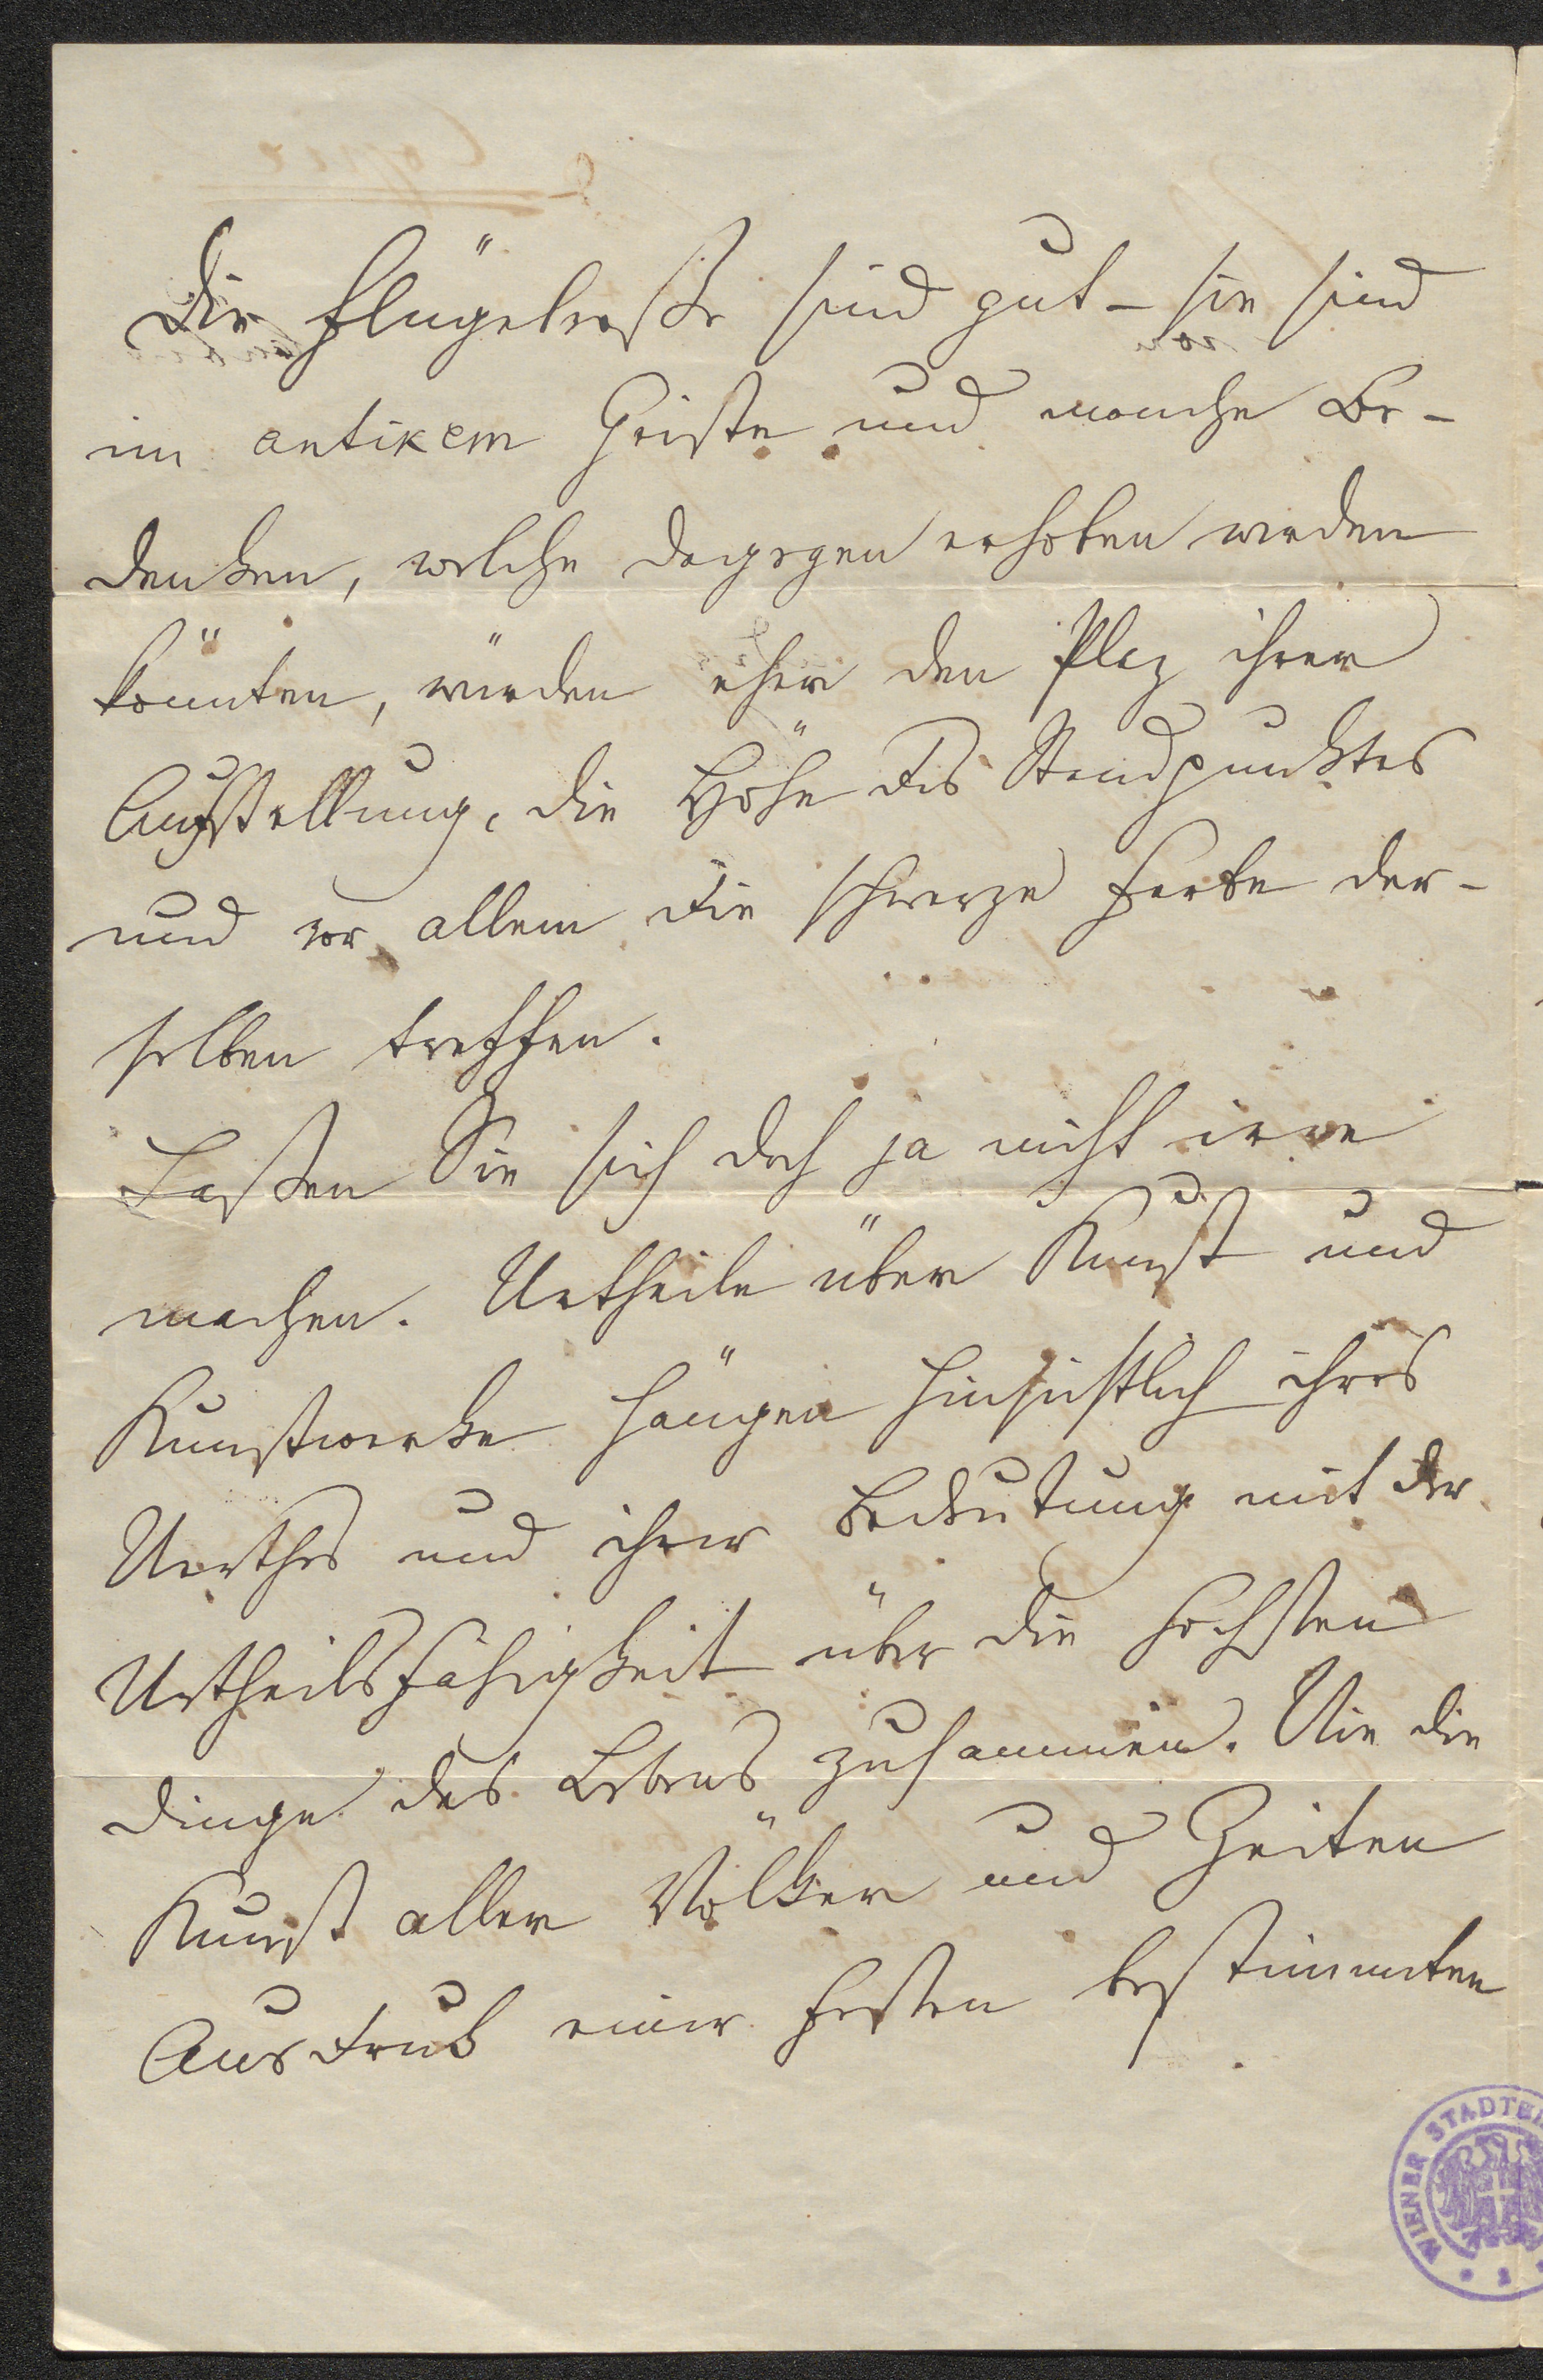 Die Flügelroße sind gut – sie sind
im antikem Geiste und manche Be-
denken, welche dagegen erhoben werden
könnten, würden eher den Plaz ihrer
Aufstellung, die Höhe des Standpunktes
und vor allem die schwarze Farbe der-
selben treffen.
Laßen Sie sich doch ja nicht irre
machen. Urtheile über Kunst und
Kunstwerke hängen hinsichtlich ihres
Werthes und ihrer Bedeutung mit der
Urtheilsfähigkeit über die höchsten
Dinge des Lebens zusammen. Wie die
Kunst aller Völker und Zeiten
Ausdruk einer festen bestimmten
WIENER STADTB